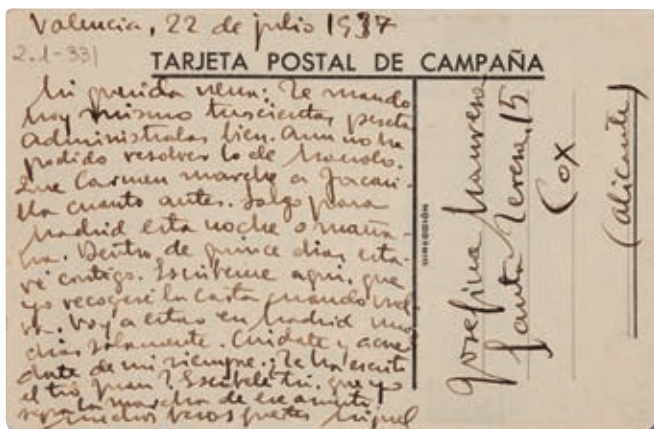 Valencia, 22 de julio 1937
2.1-331
TARJETA POSTAL DE CAMPAÑA
Mi querida nena: Te mando
hoy mismo trescientas pesetas
Adminístralas bien. Aun no he
podido resolver lo de Manolo.
Que Carmen marche a Jacari-
lla cuanto antes. Salgo para
Madrid esta noche o maña-
na. Dentro de quince dias esta-
ré contigo. Escríbeme aqui, que
yo recogeré la carta cuando vuel-
va. Voy a estar en Madrid unos
dias solamente. Cuídate y acuér-
date de mi siempre. ¿Te ha escrito
el tío Juan? Escríbele tú, que yo
sepa la marcha de ese asunto.
muchos besos fuertes Miguel
DIRECCIÓN
Josefina Manresa
Santa Teresa, 15
Cox
(Alicante)